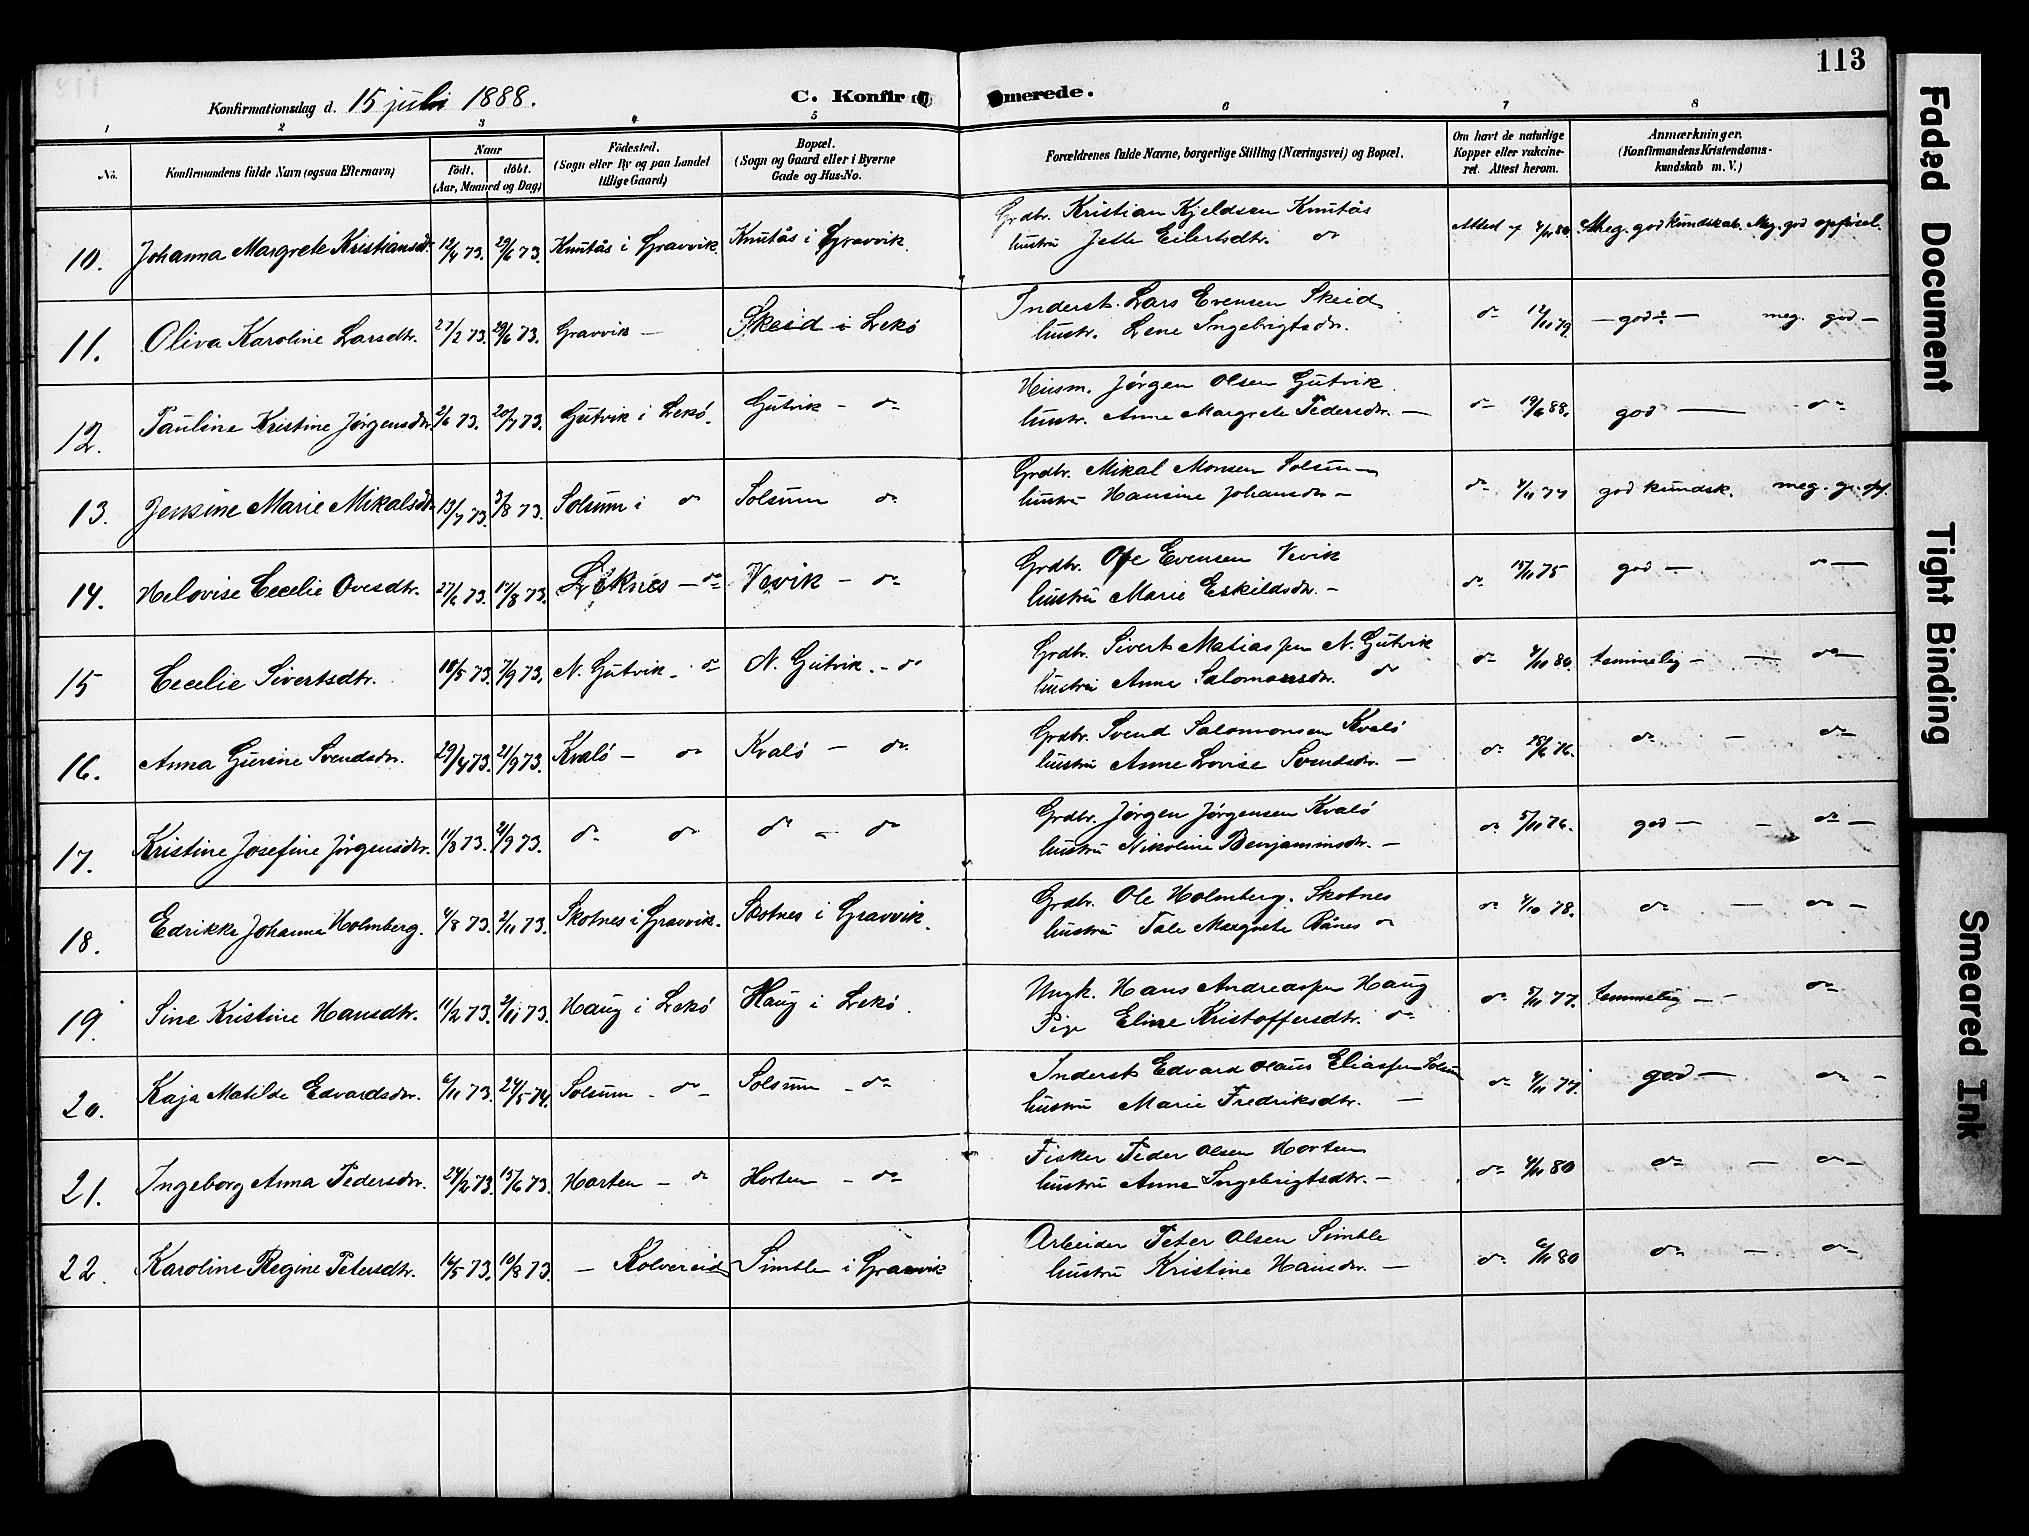 113
Konfirmationsdag d. 15 juli 1888. C. Konfirmerede.
1 2 3 4 5 6 7 8
No. Konfirmandens fulde Navn (ogsaa Efternavn) Naar født. døbt. (Aar, Maaned og Dag) Fødested. (Sogn eller By og paa Landet tillige Gaard) Bopæl. (Sogn og Gaard eller i Byerne Gade og Hus-No. Forældrenes fulde Navne, borgerlige Stilling (Næringsvei) og Bopæl. Om havt de naturlige Kopper eller vakcineret. Attest herom. Anmærkninger. (Konfirmandens Kristendomskundskab m. V.)
10. Johanna Margrete Kristiansdt. 12/4 73. 29/6 73. Knutås i Gravvik. Knutås i Gravvik. Grdbr. Kristian Kjeldsen Knutås
hustru Jette Eilertsdtr. do Attest af 4/11 80. Meg. god kundskab. Meg. god opførsel.
11. Oliva Karoline Larsdtr. 27/2 73. 29/6 73. Gravvik — Skeid i Lekø Inderst. Lars Evensen Skeid
hustr. Lene Ingebrigtsdr. do 12/11 79. — god — meg. god —
12. Pauline Kristine Jørgensdr. 2/6 73. 20/7 73. Gutvik i Lekø. Gutvik - do Husm. Jørgen Olsen Gutvik
hustr. Anne Margrete Pedersdr. — do 19/6 88. god — do
13. Jensine Marie Mikalsdr. 13/7 73. 3/8 73. Solsum i do Solsum do Grdbr. Mikal Monsen Solsum
hustru Hansine Johansdr — do 4/11 77 god kundsk. meg. g. opf.
14. Helovise Cecelie Ovesdtr. 27/6 73. 17/8 73. Leknes — do Vevik - do Grdbr. Ove Evensen Vevik
hustru Marie Eskildsdr. - do 15/11 75 god — do —
15 Cecelie Sivertsdtr. 18/5 73. 7/9 73. N. Gutvik - do N. Gutvik. - do Grdbr. Sivert Matiassen N. Gutvik
hustru Anne Salomonsdr. do do 4/11 80. temmelig — — do —
16. Anna Gurine Svendsdr. 29/4 73. 21/9 73. Kvalø — do Kvalø — do Grdbr. Svend Salomonsen Kvalø
hustru Anne Lovise Svendsdr. — do 25/6 76. do - do
17. Kristine Josefine Jørgensdr. 11/8 73. 21/9 73. do do do - do Grdbr. Jørgen Jørgensen Kvalø
hustru Nikoline Benjaminsdtr. — do 5/11 76. god — - do —
18. Edrikke Johanna Holmberg. 4/8 73. 2/11 73. Skotnes i Gravvik. Skotnes i Gravvik. Grdbr. Ole Holmberg. Skotnes
hustru Tale Margrete Rånes do do 4/10 78. do — do —
19. Sine Kristine Hansdtr. 11/2 73. 2/11 73. Haug i Lekø Haug i Lekø. Ungk. Hans Andreassen Haug
Pige Eline Kristoffersdtr. do do 5/11 77. temmelig — - do
20. Kaja Matilde Edvardsdr. 6/11 73. 24/5 74. Solsum - do - Solsum - do Inderst Edvard Olaus Eliassen Solsum
hustru Marie Fredriksdtr. — do 4/11 77. god — do -
21. Ingeborg Anna Pedersdr. 24/2 73. 15/6 73. Horten - do Horten - do Fisker Peder Olsen Horten
hustru Anne Ingebrigtsdtr. — do 4/11 80 do — do —
22. Karoline Regine Petersdtr. 16/5 73. 10/8 73. — Kolvereid Simble i Gravvik Arbeider Peter Olsen Simble
hustru Kristine Hansdr. — do 6/11 80 do — do —
Faded Document
Tight Binding
Smeared Ink